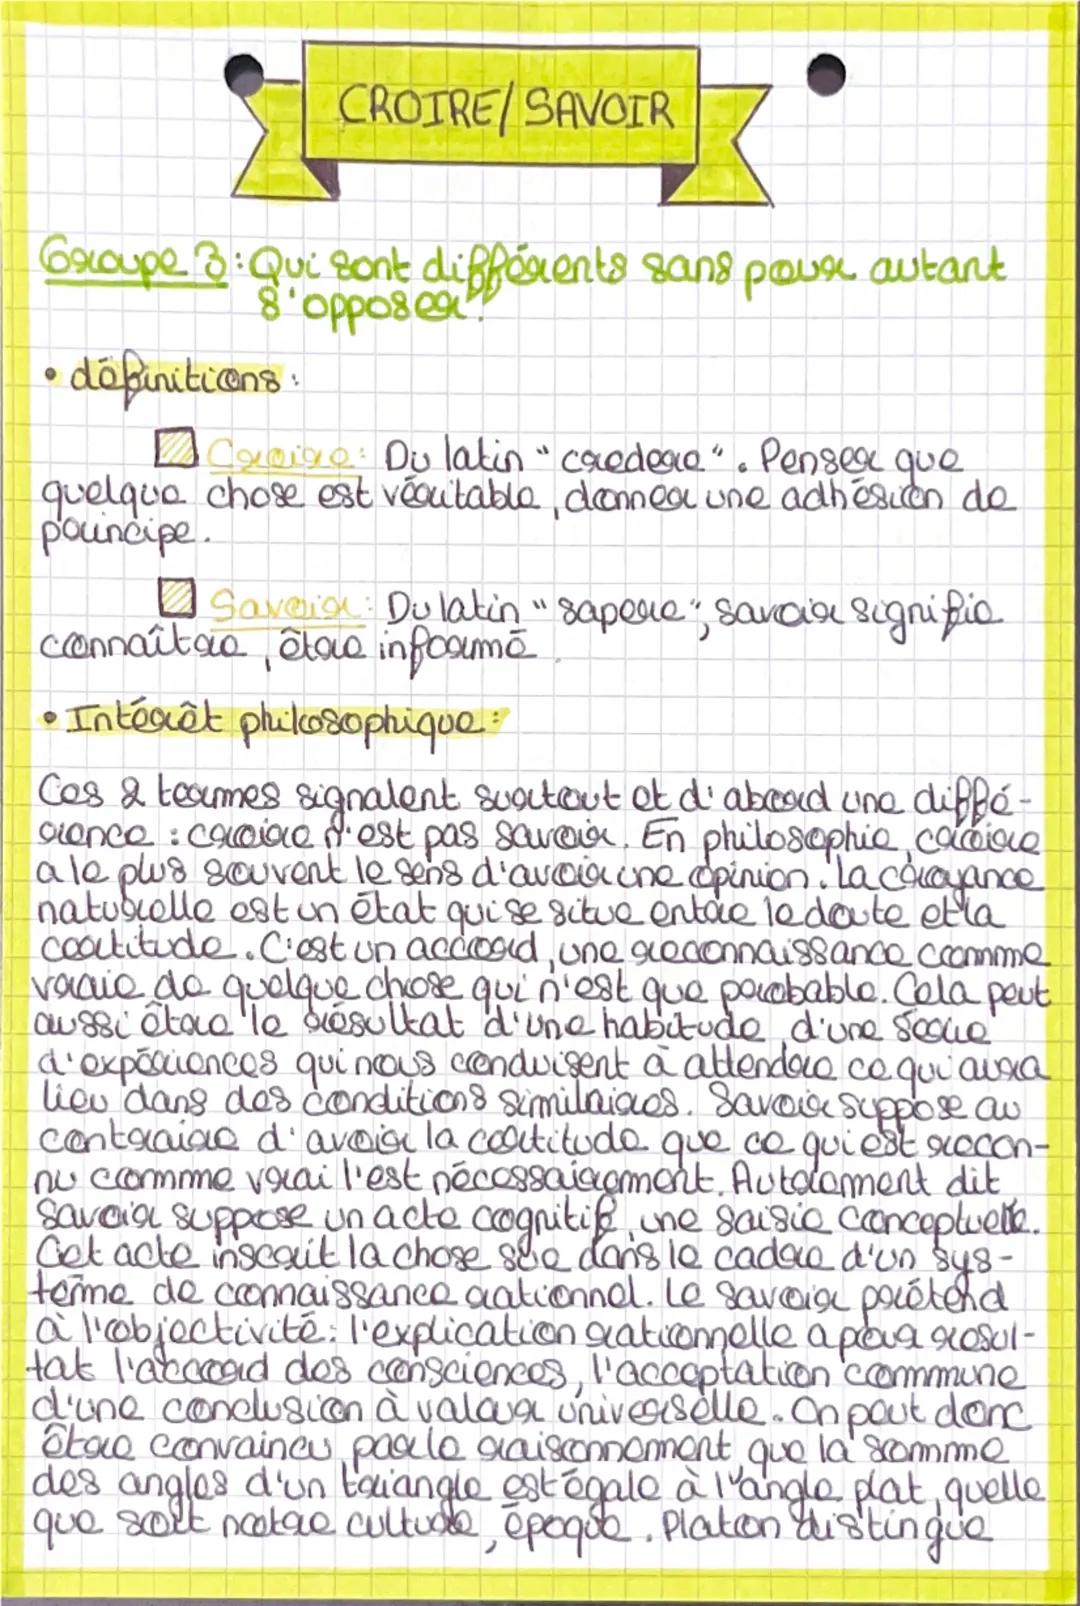 CROIRE/SAVOIR
Groupe 3 : Qui sont différents sans pour autant
s'opposer.
• définitions :
Croire : Du latin "credere". Penser que
quelque chose est véritable, donner une adhésion de
principe.
Savoir : Du latin "sapere", savoir signifie
connaître, être informé.
• Intérêt philosophique :
Ces 2 termes signalent surtout et d'abord une diffé-
rence : croire n'est pas savoir. En philosophie, croire
a le plus souvent le sens d'avoir une opinion. La croyance
naturelle est un état qui se situe entre le doute et la
certitude. C'est un accord, une reconnaissance comme
vraie de quelque chose qui n'est que probable. Cela peut
aussi être le résultat d'une habitude, d'une série
d'expériences qui nous conduisent à attendre ce qui aura
lieu dans des conditions similaires. Savoir suppose au
contraire d'avoir la certitude que ce qui est recon-
nu comme vrai l'est nécessairement. Autrement dit
savoir suppose un acte cognitif, une saisie conceptuelle.
Cet acte inscrit la chose sue dans le cadre d'un sys-
tème de connaissance rationnel. Le savoir prétend
à l'objectivité : l'explication rationnelle a pour résul-
tat l'accord des consciences, l'acceptation commune
d'une conclusion à valeur universelle. On peut donc
être convaincu, par le raisonnement, que la somme
des angles d'un triangle est égale à l'angle plat, quelle
que soit notre culture, époque. Platon distingue